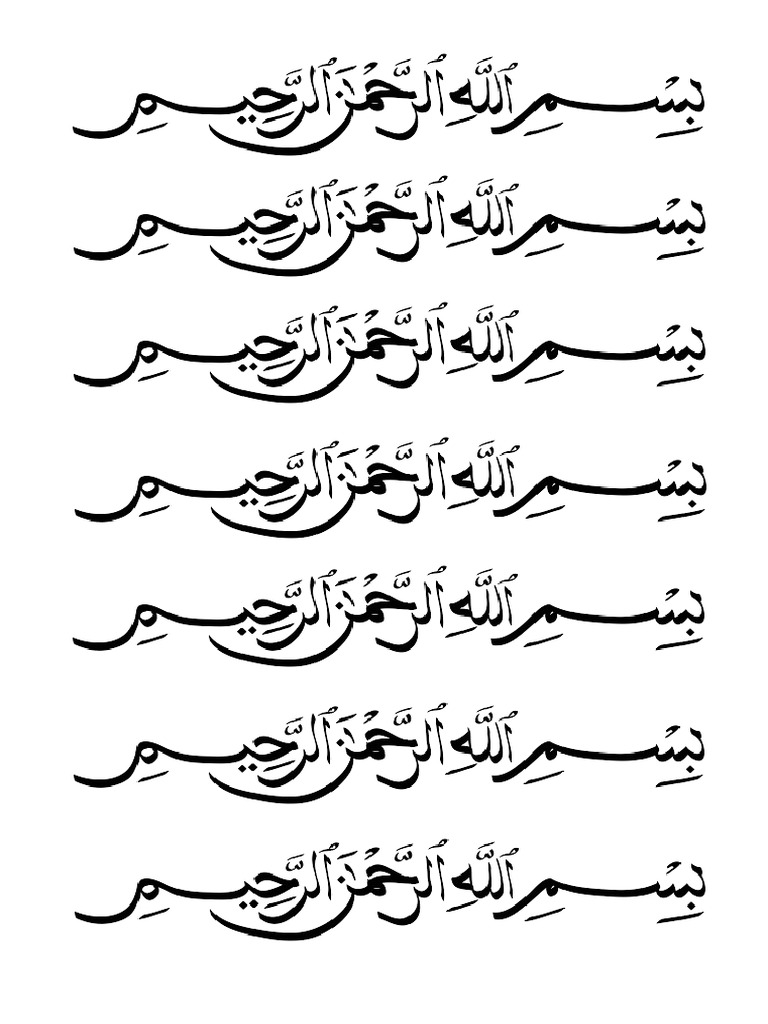 بِسْمِ ٱللَّهِ ٱلرَّحْمَٰنِ ٱلرَّحِيمِ
بِسْمِ ٱللَّهِ ٱلرَّحْمَٰنِ ٱلرَّحِيمِ
بِسْمِ ٱللَّهِ ٱلرَّحْمَٰنِ ٱلرَّحِيمِ
بِسْمِ ٱللَّهِ ٱلرَّحْمَٰنِ ٱلرَّحِيمِ
بِسْمِ ٱللَّهِ ٱلرَّحْمَٰنِ ٱلرَّحِيمِ
بِسْمِ ٱللَّهِ ٱلرَّحْمَٰنِ ٱلرَّحِيمِ
بِسْمِ ٱللَّهِ ٱلرَّحْمَٰنِ ٱلرَّحِيمِ